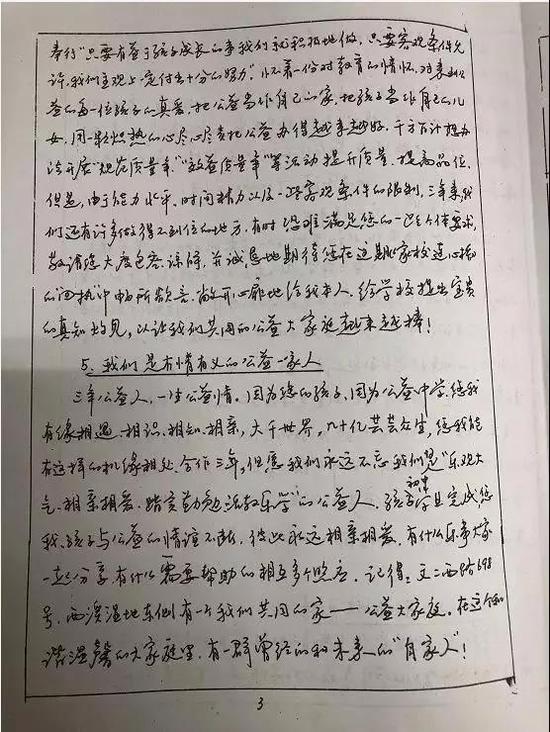 奉行“只要有益于孩子成长的事我们就积极地做，只要客观条件允
许，我们主观上一定付出十分的努力”，怀着一份对教育的情怀，对来到公
益的每一位孩子的真爱，把公益当作自己的家，把孩子当作自己的儿
女，用一颗炽热的心尽心尽责把公益办得越来越好，千方百计想办
法开展“规范质量年”“效益质量年”等活动提升质量、提高品位，
但是，由于能力水平、时间精力以及一些客观条件的限制，三年来我
们还有许多做得不到位的地方，有时恐难满足您的一些个体要求，
敬请您大度包容、谅解，并诚恳地期待您在这期“家校连心桥”
的“回执”中畅所欲言，敞开心扉地给我本人、给学校提出宝贵
的真知灼见，以让我们共同的公益大家庭越来越棒！
5、我们是有情有义的公益一家人
三年公益人，一生公益情。因为您的孩子，因为公益中学，您我
有缘相遇、相识、相知、相亲，大千世界，几十亿芸芸众生，您我能
有这样的机缘相处、合作三年，但愿我们永远不忘我们是“乐观大
气、相亲相爱、踏实勤勉、活教乐学”的公益人，孩子初中学业完成，您
我、孩子与公益的情谊不断，彼此永远相亲相爱，有什么乐事大家
一起分享，有什么需要帮助的相互多个照应。记得：文二西路698
号，西溪湿地东侧有一个我们共同的家——公益大家庭。在这个和
谐温馨的大家庭里，有一群曾经的和未来的“自家人”！
3